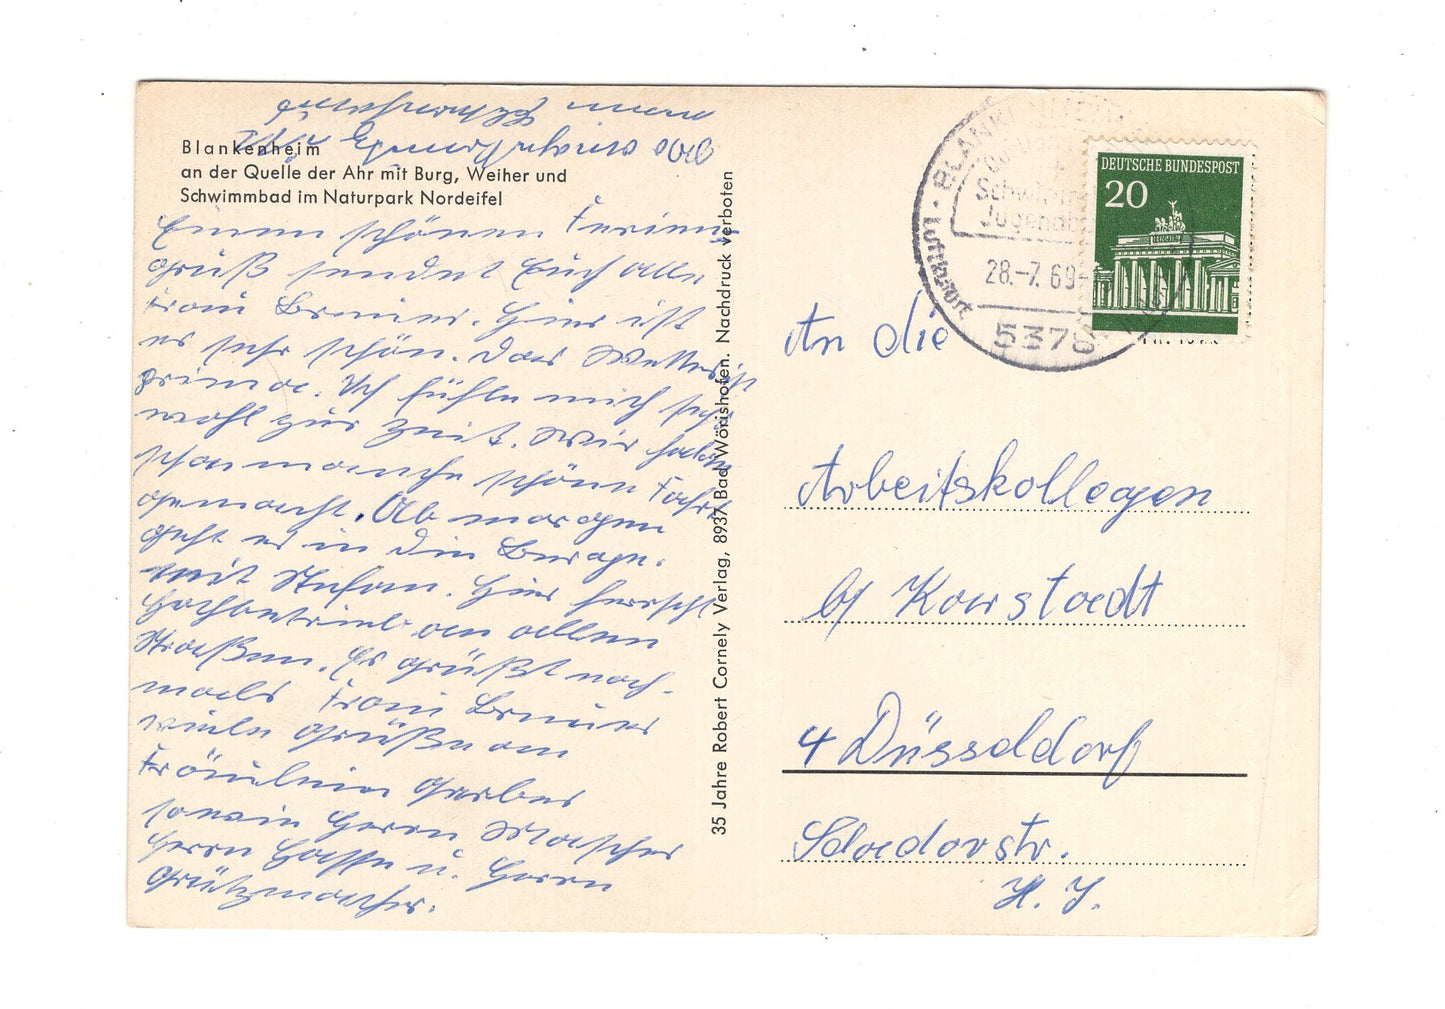 Blankenheim
an der Quelle der Ahr mit Burg, Weiher und
Schwimmbad im Naturpark Nordeifel
Einen schönen Ferien
gruß sendet Euch alle
Frau Bremer. Hier ist
es sehr schön. Das Wetter ist
prima. Ich fühle mich sehr
wohl zur Zeit. Wir haben
schon manche schöne Fahrt
gemacht. Ab morgen
geht es in die Berge.
mit Stefan. Hier herrscht
Hochbetrieb an allen
Straßen. Es grüßt noch-
mals Frau Bremer
viele Grüße an
Fräulein Gerber
sowie Herrn
Herrn Hasse u. Herrn
Grützmacher.
35 Jahre Robert Cornely Verlag, 8937 Bad Wörishofen. Nachdruck verboten
BLANKENHEIM
Schwimm
Jugendh
28.-7.69
Luftkurort
5378
DEUTSCHE BUNDESPOST
20
An die
Arbeitskollegen
by Karstadt
4 Düsseldorf
Schadowstr.
H. J.